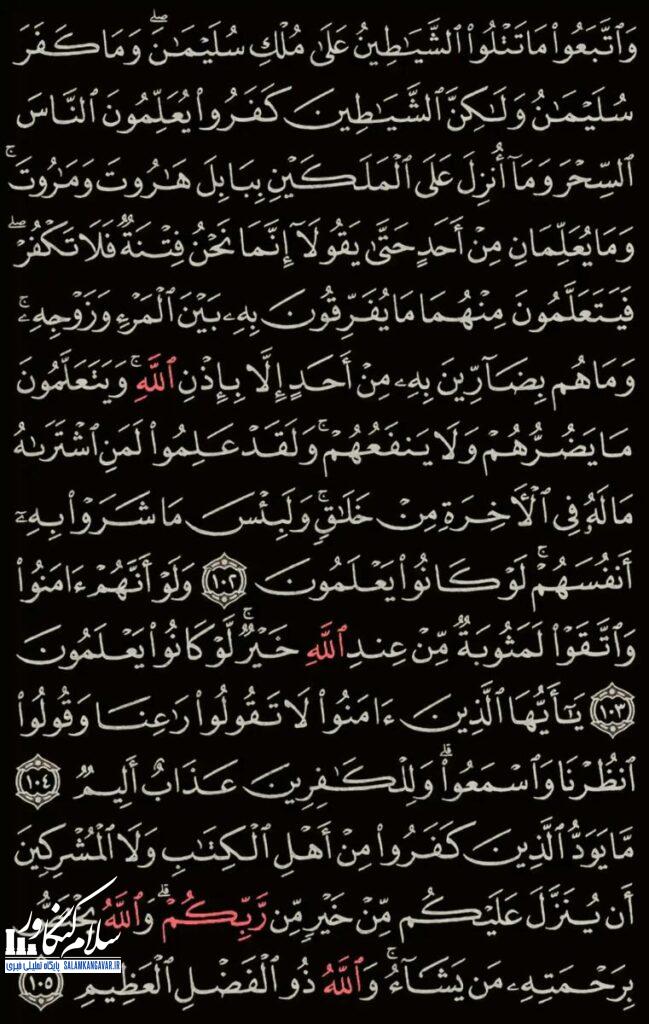 وَٱتَّبَعُوا۟ مَا تَتْلُوا۟ ٱلشَّيَـٰطِينُ عَلَىٰ مُلْكِ سُلَيْمَـٰنَ ۖ وَمَا كَفَرَ
سُلَيْمَـٰنُ وَلَـٰكِنَّ ٱلشَّيَـٰطِينَ كَفَرُوا۟ يُعَلِّمُونَ ٱلنَّاسَ
ٱلسِّحْرَ وَمَآ أُنزِلَ عَلَى ٱلْمَلَكَيْنِ بِبَابِلَ هَـٰرُوتَ وَمَـٰرُوتَ ۚ
وَمَا يُعَلِّمَانِ مِنْ أَحَدٍ حَتَّىٰ يَقُولَآ إِنَّمَا نَحْنُ فِتْنَةٌ فَلَا تَكْفُرْ ۖ
فَيَتَعَلَّمُونَ مِنْهُمَا مَا يُفَرِّقُونَ بِهِۦ بَيْنَ ٱلْمَرْءِ وَزَوْجِهِۦ ۚ
وَمَا هُم بِضَآرِّينَ بِهِۦ مِنْ أَحَدٍ إِلَّا بِإِذْنِ ٱللَّهِ ۚ وَيَتَعَلَّمُونَ
مَا يَضُرُّهُمْ وَلَا يَنفَعُهُمْ ۚ وَلَقَدْ عَلِمُوا۟ لَمَنِ ٱشْتَرَىٰهُ
مَا لَهُۥ فِى ٱلْـَٔاخِرَةِ مِنْ خَلَـٰقٍ ۚ وَلَبِئْسَ مَا شَرَوْا۟ بِهِۦٓ
أَنفُسَهُمْ ۚ لَوْ كَانُوا۟ يَعْلَمُونَ ١٠٢ وَلَوْ أَنَّهُمْ ءَامَنُوا۟
وَٱتَّقَوْا۟ لَمَثُوبَةٌ مِّنْ عِندِ ٱللَّهِ خَيْرٌ ۖ لَّوْ كَانُوا۟ يَعْلَمُونَ
١٠٣ يَـٰٓأَيُّهَا ٱلَّذِينَ ءَامَنُوا۟ لَا تَقُولُوا۟ رَٰعِنَا وَقُولُوا۟
ٱنظُرْنَا وَٱسْمَعُوا۟ ۗ وَلِلْكَـٰفِرِينَ عَذَابٌ أَلِيمٌ ١٠٤
مَّا يَوَدُّ ٱلَّذِينَ كَفَرُوا۟ مِنْ أَهْلِ ٱلْكِتَـٰبِ وَلَا ٱلْمُشْرِكِينَ
أَن يُنَزَّلَ عَلَيْكُم مِّنْ خَيْرٍ مِّن رَّبِّكُمْ ۗ وَٱللَّهُ يَخْتَصُّ
بِرَحْمَتِهِۦ مَن يَشَآءُ ۚ وَٱللَّهُ ذُو ٱلْفَضْلِ ٱلْعَظِيمِ ١٠٥
سلام کنگاور
پایگاه تحلیلی خبری SALAMKANGAVAR.IR